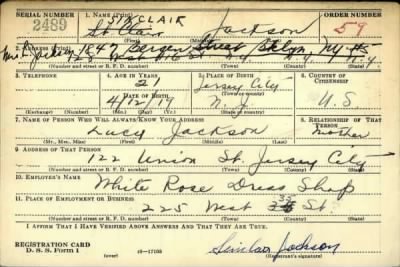 SERIAL NUMBER
1. NAME (Print)
ORDER NUMBER
2489
SINCLAIR
St. Clair Jackson
59
(First) (Middle) (Last)
2. ADDRESS (Print)
1847 Bergen Street Bklyn, NY
128 West N.Y. N.Y.
(Number and street or R. F. D. number) (Town) (County) (State)
3. TELEPHONE
4. AGE IN YEARS
5. PLACE OF BIRTH
6. COUNTRY OF CITIZENSHIP
21
Jersey City
DATE OF BIRTH
(Town or county)
4/12/19
N. J.
U. S.
(Exchange) (Number)
(Mo.) (Day) (Yr.)
(State or country)
7. NAME OF PERSON WHO WILL ALWAYS KNOW YOUR ADDRESS
8. RELATIONSHIP OF THAT PERSON
Lucy Jackson
mother
(Mr., Mrs., Miss) (First) (Middle) (Last)
9. ADDRESS OF THAT PERSON
122 Union St. Jersey City
(Number and street or R. F. D. number) (Town) (County) (State)
10. EMPLOYER'S NAME
White Rose Dress Shop
11. PLACE OF EMPLOYMENT OR BUSINESS
225 West 35 St.
(Number and street or R. F. D. number) (Town) (County) (State)
I AFFIRM THAT I HAVE VERIFIED ABOVE ANSWERS AND THAT THEY ARE TRUE.
REGISTRATION CARD
D. S. S. Form 1
(over)
16-17105
Sinclair Jackson
(Registrant's signature)